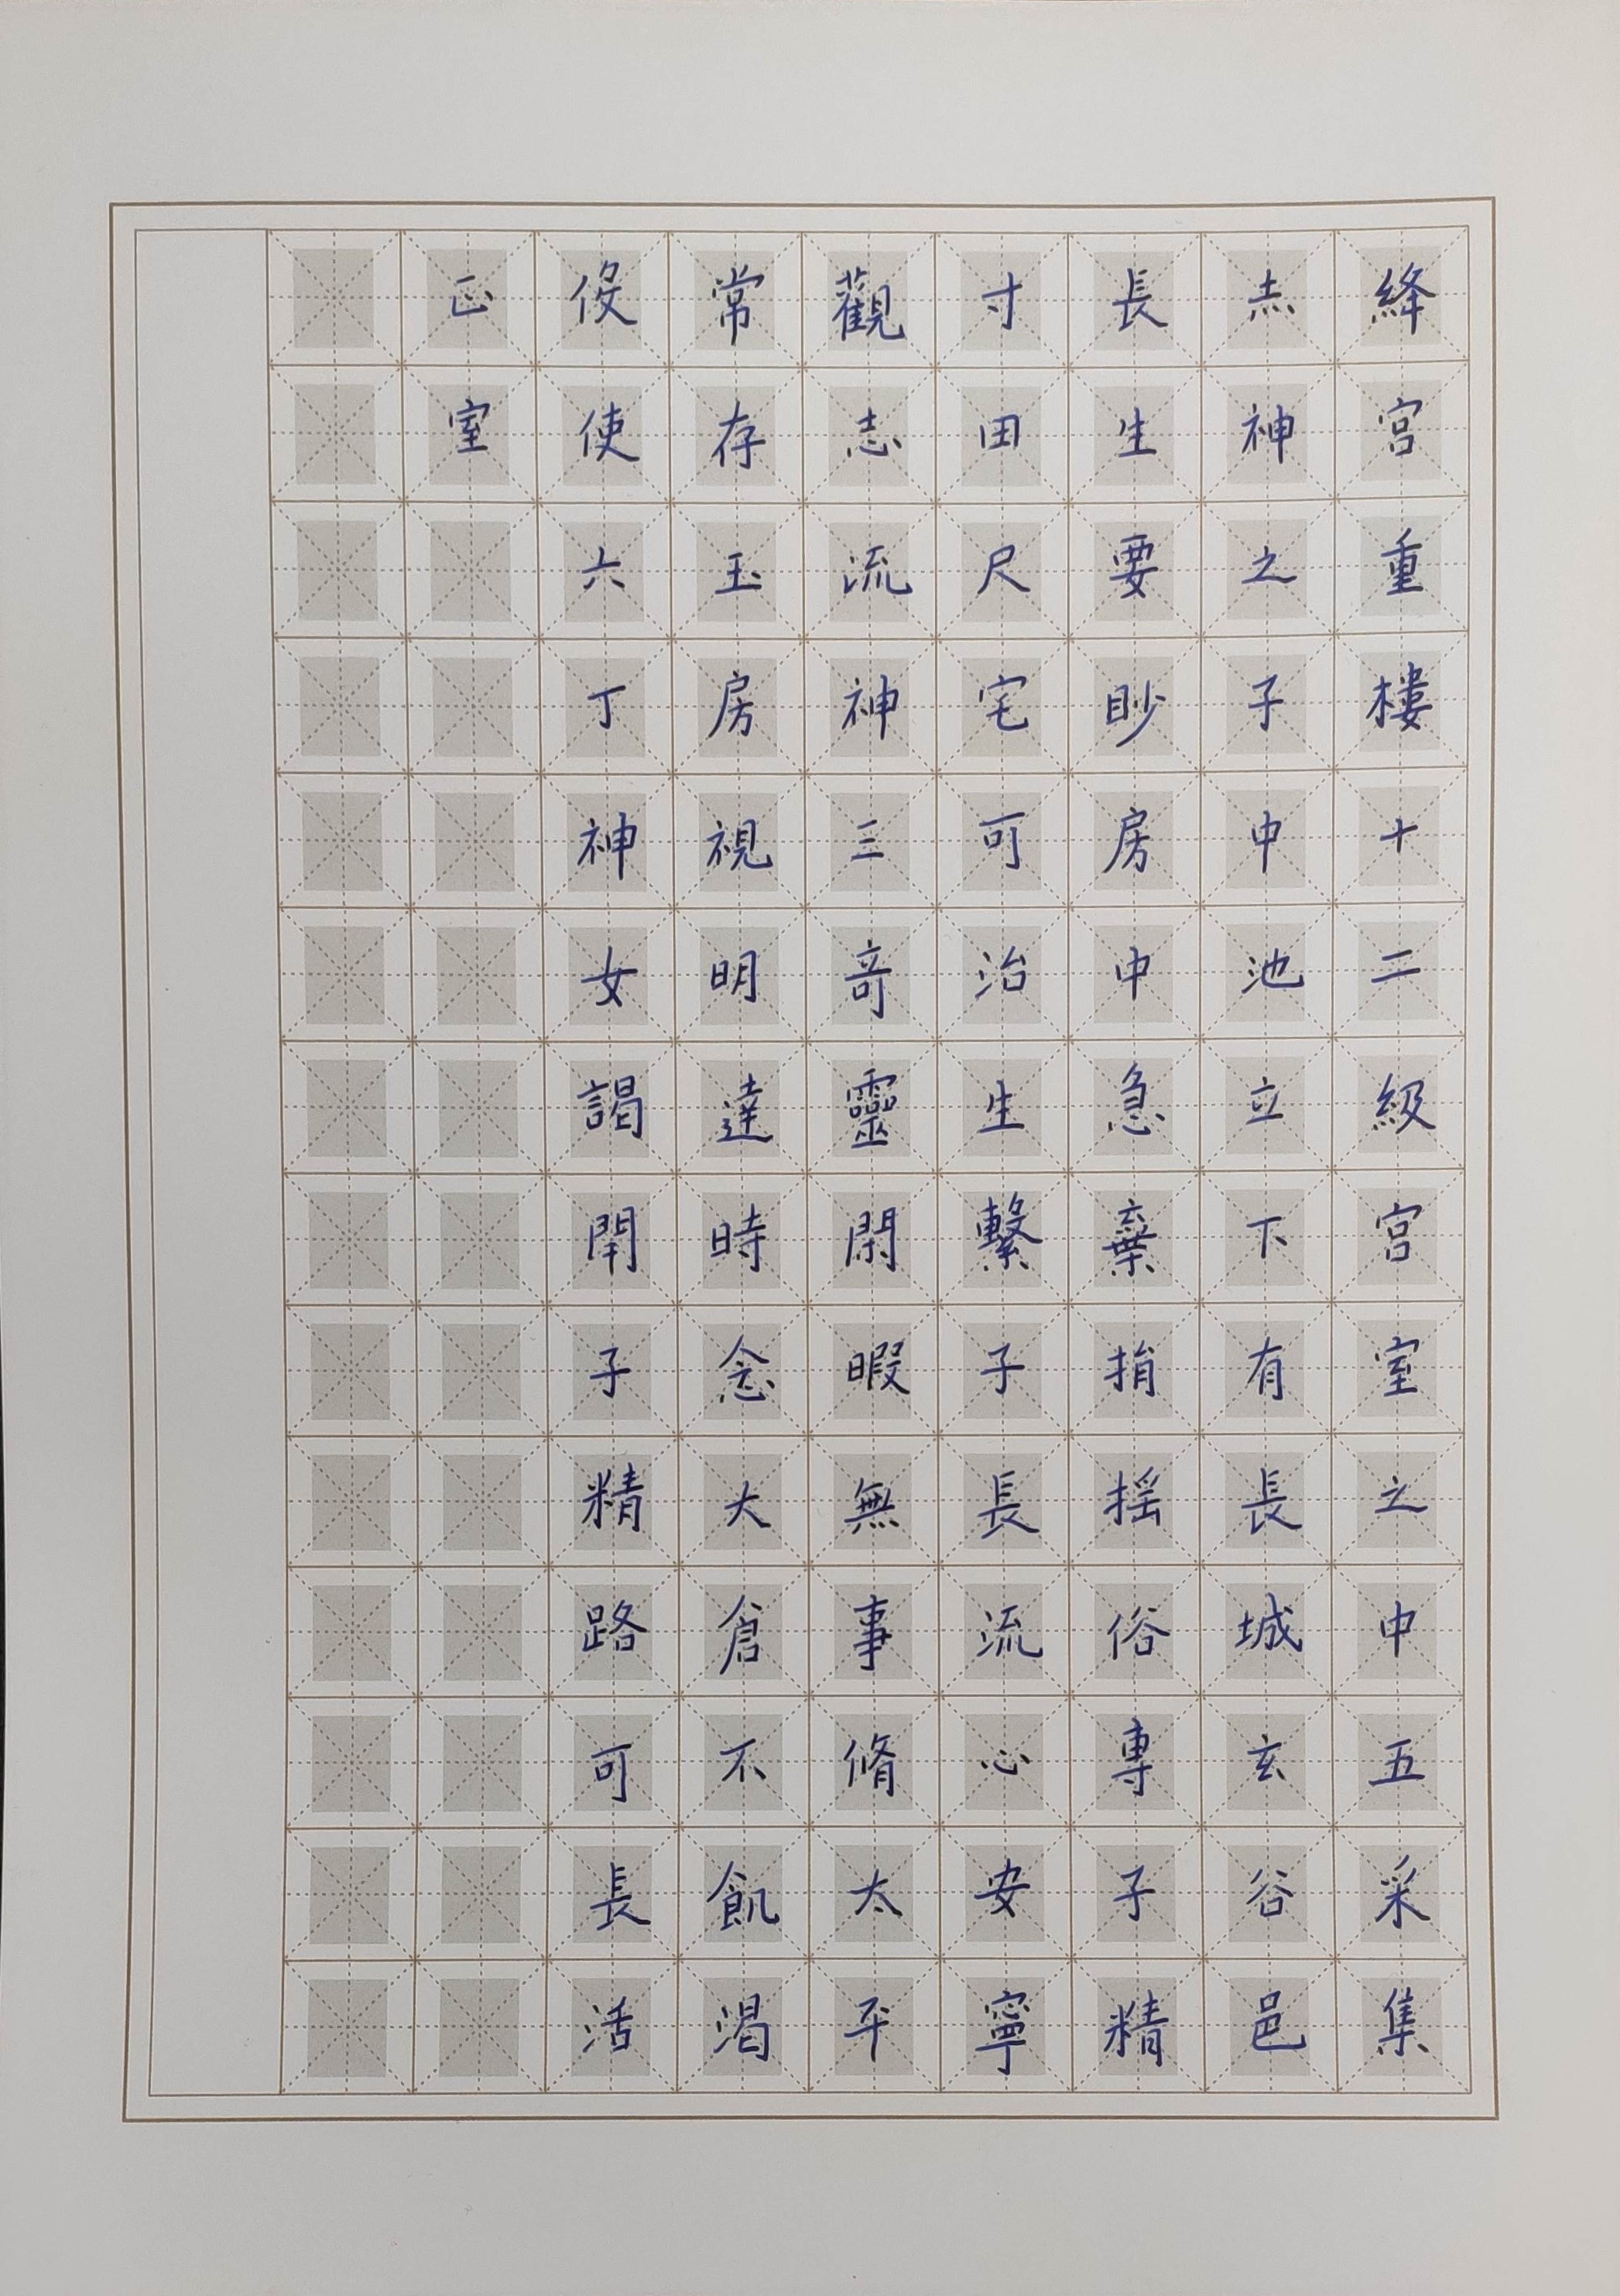 絳宮重樓十二級宮室之中五采集
赤神之子中池立下有長城玄谷邑
長生要眇房中急棄捐揺俗專子精
寸田尺宅可治生繫子長流心安寧
觀志流神三奇靈閑暇無事脩太平
常存玉房視明達時念大倉不飢渴
役使六丁神女謁閇子精路可長活
正室